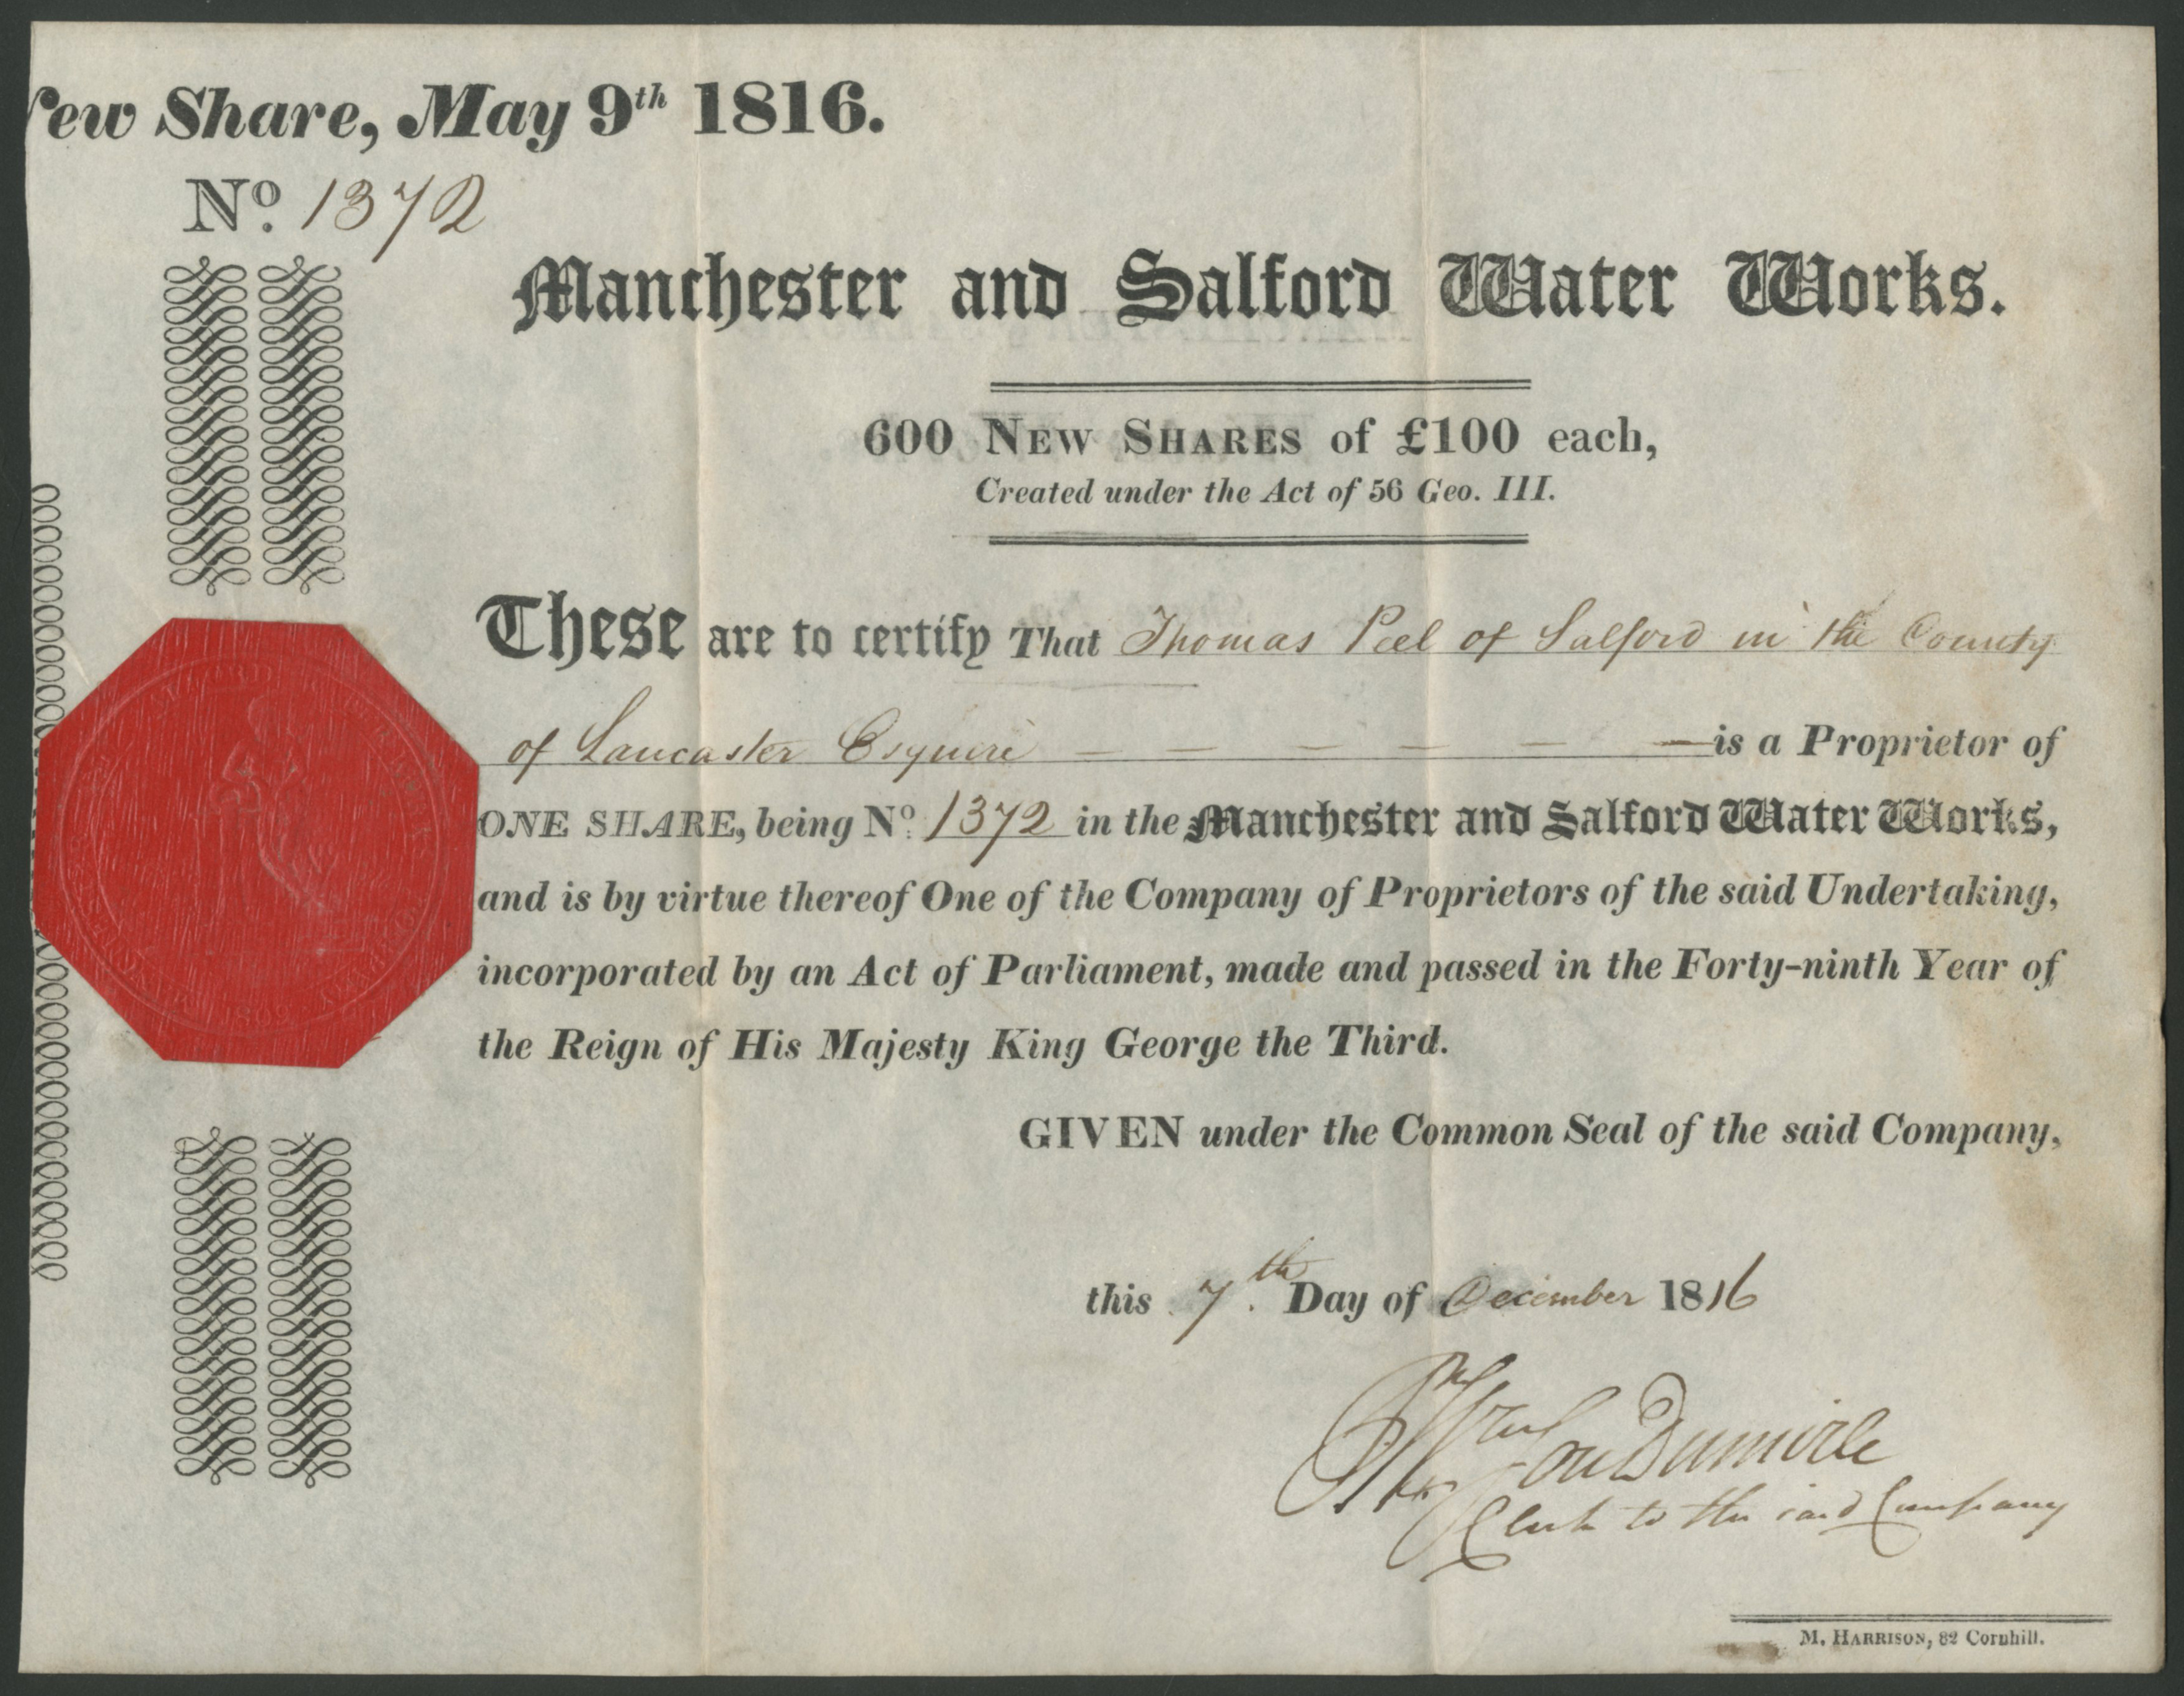 ew Share, May 9th 1816.
No. 1372
Manchester and Salford Water Works.
600 NEW SHARES of £100 each,
Created under the Act of 56 Geo. III.
These are to certify That Thomas Peel of Salford in the County
of Lancaster Esquire — — — — — — is a Proprietor of
ONE SHARE, being No. 1372 in the Manchester and Salford Water Works,
and is by virtue thereof One of the Company of Proprietors of the said Undertaking,
incorporated by an Act of Parliament, made and passed in the Forty-ninth Year of
the Reign of His Majesty King George the Third.
GIVEN under the Common Seal of the said Company,
this 7.th Day of December 1816
Dumvile
Clerk to the said Company
M. HARRISON, 82 Cornhill.
1809